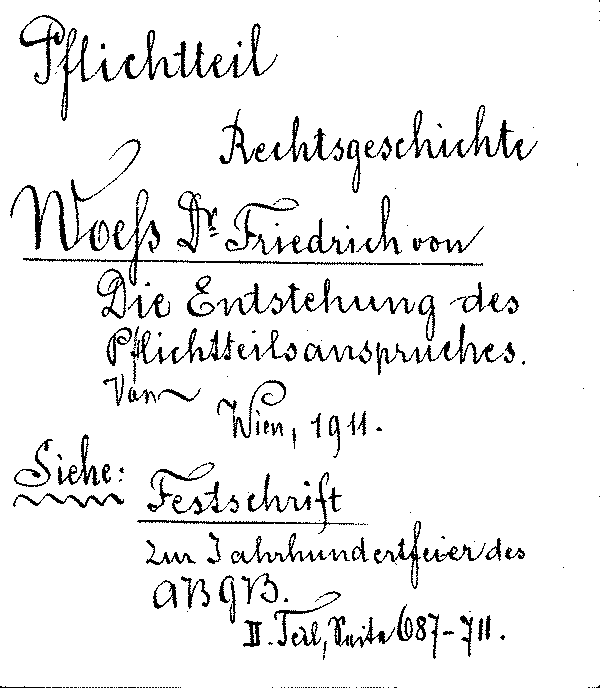 Pflichtteil
Rechtsgeschichte
Woeß Dr. Friedrich von
Die Entstehung des
Pflichtteilsanspruches.
Von ~
Wien, 1911.
Siehe:
Festschrift
zur Jahrhundertfeier des
ABGB.
II. Teil, Seite 687-711.